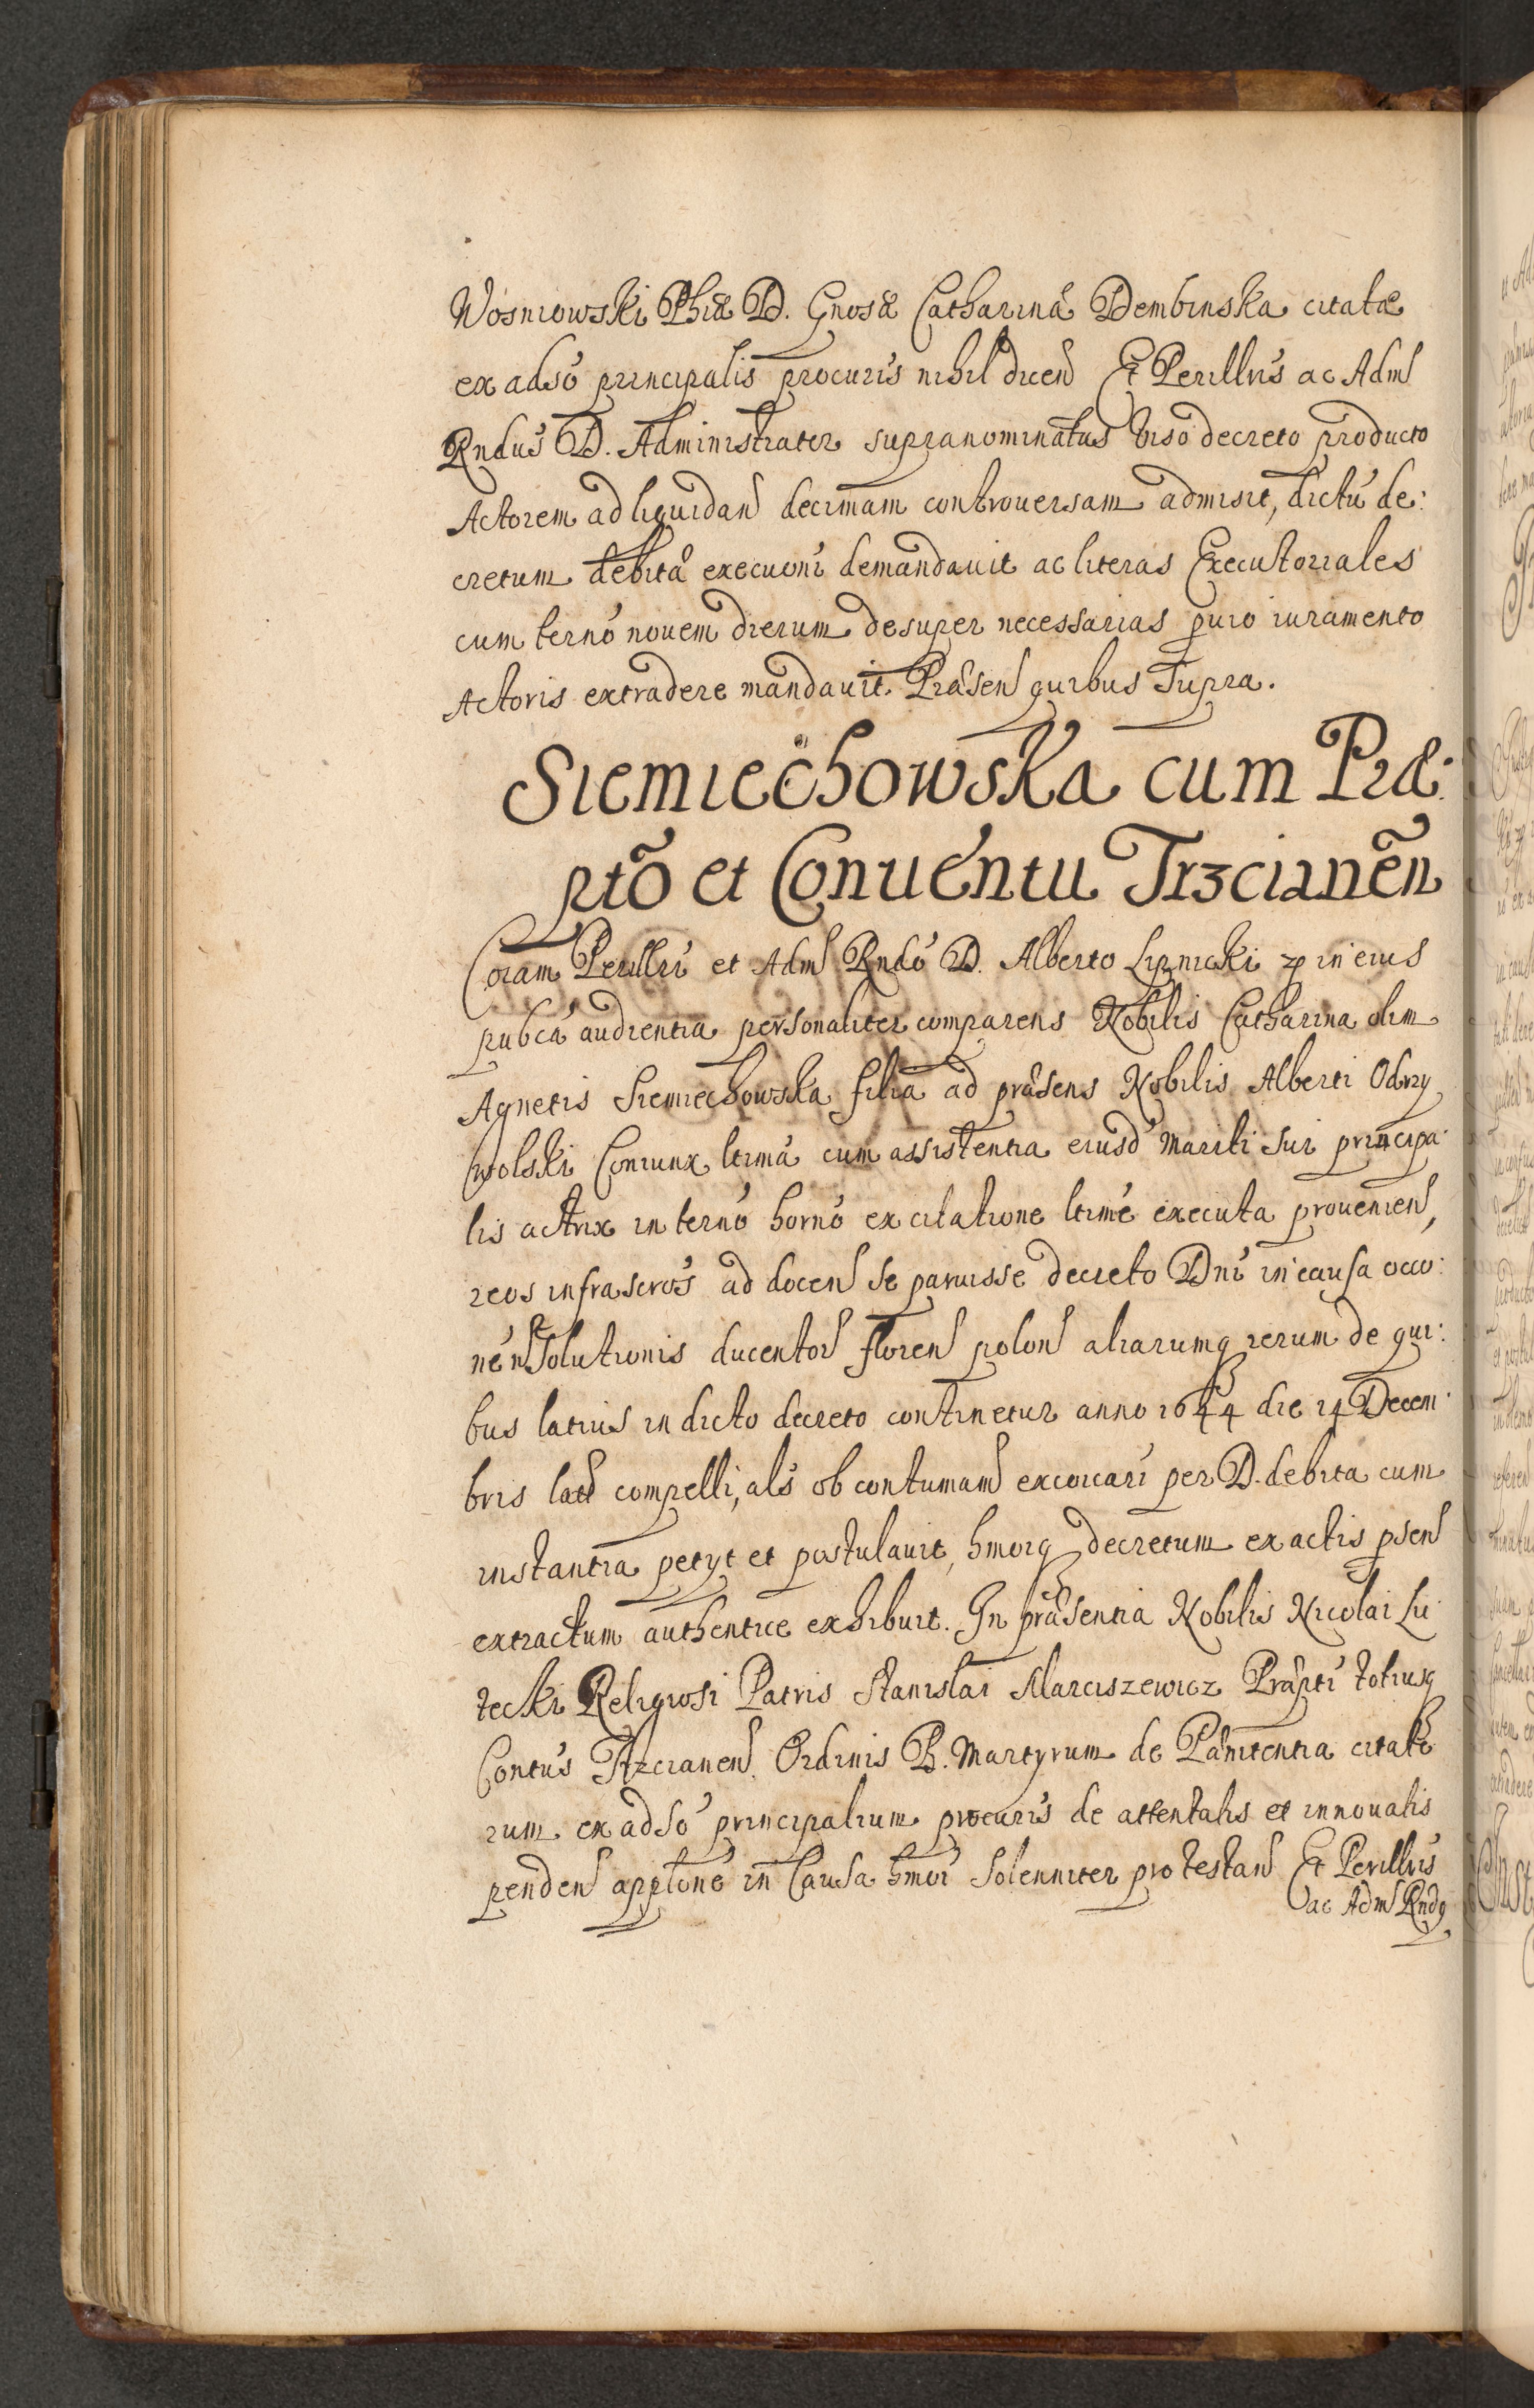 Wosniowski Phiæ D. Gnosæ Catharinæ Dembinska citatæ
ex adso principalis procuris nihil dicen Et Perillris ac Adm
Rndus D. Administrator supranominatus viso decreto producto
Actorem ad liquidan decimam controuersam admisit, dictu de:
cretum debita execuoni demandauit ac literas Executoriales
cum terno nouem dierum desuper necessarias puio iuramento
Actoris extradere mandauit. Præsen quibus Supra.
Siemiechowska cum Præ:
pto et Conuentu Trzcianen
Coram Perillri et Adm Rndo D. Alberto Lipnicki in eius
pubca audientia personaliter comparens Nobilis Catharina olim
Agnetis Siemiechowska filia ad præsens Nobilis Alberti Odrzy
wolski Coniunx ltima cum assistentia eiusd Mariti sui principa:
lis actrix in terno horno ex citatione ltime executa prouenien,
reos infrascros ad docen se paruisse decreto Dni in causa occo:
nen Solutionis ducentor floren polon aliarumq rerum de qui:
bus latius in dicto decreto continetur anno 1644 die 14 Decem:
bris lat compelli, als ob contumam excoicari per D. debita cum
instantia petyt et postulauit, hmoiq decretum ex actis psen
extractum authentice exhibuit. In præsentia Nobilis Nicolai Su
tecki Religiosi Patris Stanislai Marciszewicz Præpti totiusq
Contus Trzcianen Ordinis B. Martyrum de Pænitentia citato
rum ex adso principalium procuris de attentatis et innouatis
penden applone in Causa hmoi Solenniter protestan Et Perillris
ac Adm Rndq